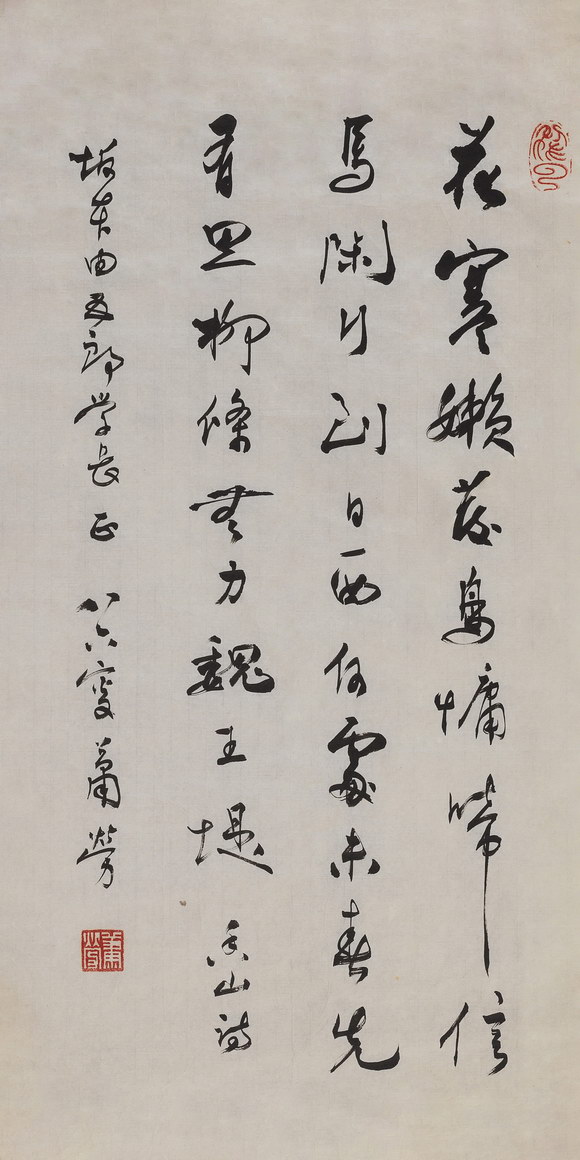 花寒嬾發鳥慵啼信
馬閑行到日西何處未春先
有思柳條無力魏王堤 香山詩
坂本由五郎学長正 八六叟蕭勞
蕭勞